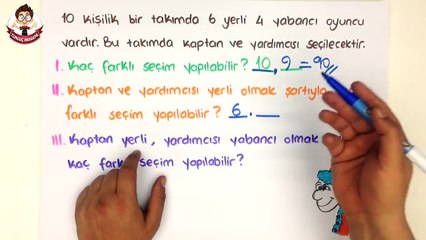 10 Kişilik bir takımda 6 yerli 4 yabancı oyuncu
vardır. Bu takımda kaptan ve yardımcısı seçilecektir.
I. Kaç farklı seçim yapılabilir? 10 . 9 = 90
II. Kaptan ve yardımcısı yerli olmak şartıyla
farklı seçim yapılabilir? 6 .
III. Kaptan yerli, yardımcısı yabancı olmak
kaç farklı seçim yapılabilir?